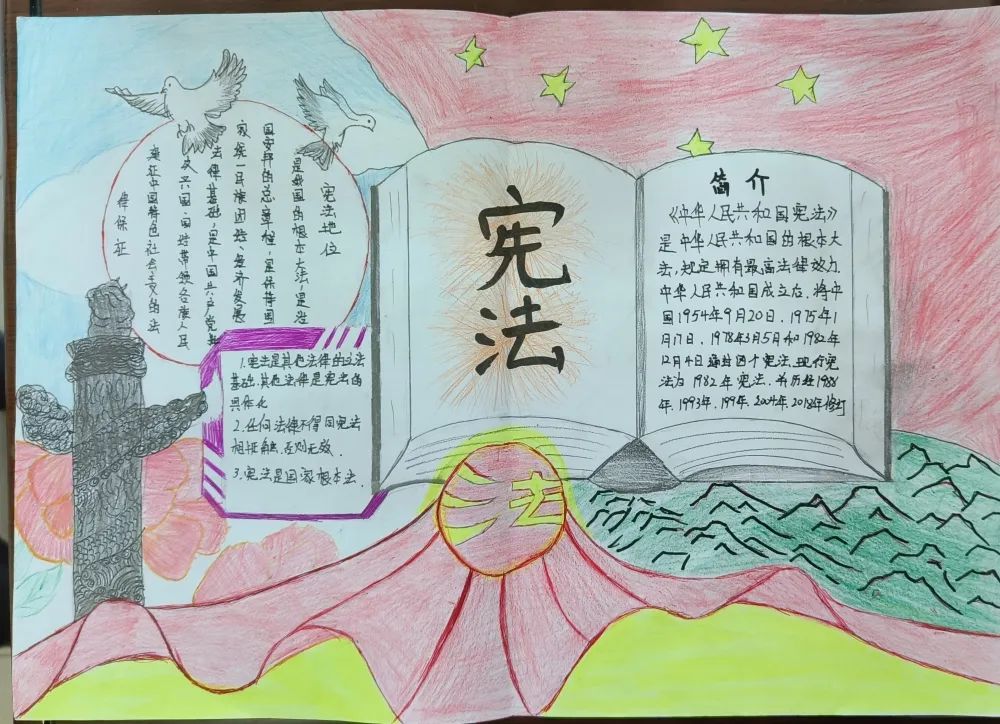 宪法地位
是我国的根本大法,是治
国安邦的总章程,是保持国
家统一民族团结、经济发展
法律基础,是中国共产党执
政兴国、团结带领各族人民
中国特色社会主义的法
律保证
1.宪法是其他法律的立法
基础,其他法律是宪法的
具体化
2.任何法律不得同宪法
相抵触,否则无效.
3.宪法是国家根本法.
宪法
简介
《中华人民共和国宪法》
是中华人民共和国的根本大
法,规定拥有最高法律效力.
中华人民共和国成立后,将中
国1954年9月20日、1975年1
月17日、1978年3月5日和1982年
12月4日通过四个宪法,现行宪
法为1982年宪法,并历经1988
年、1993年、199年、2004年、2018年修订
法